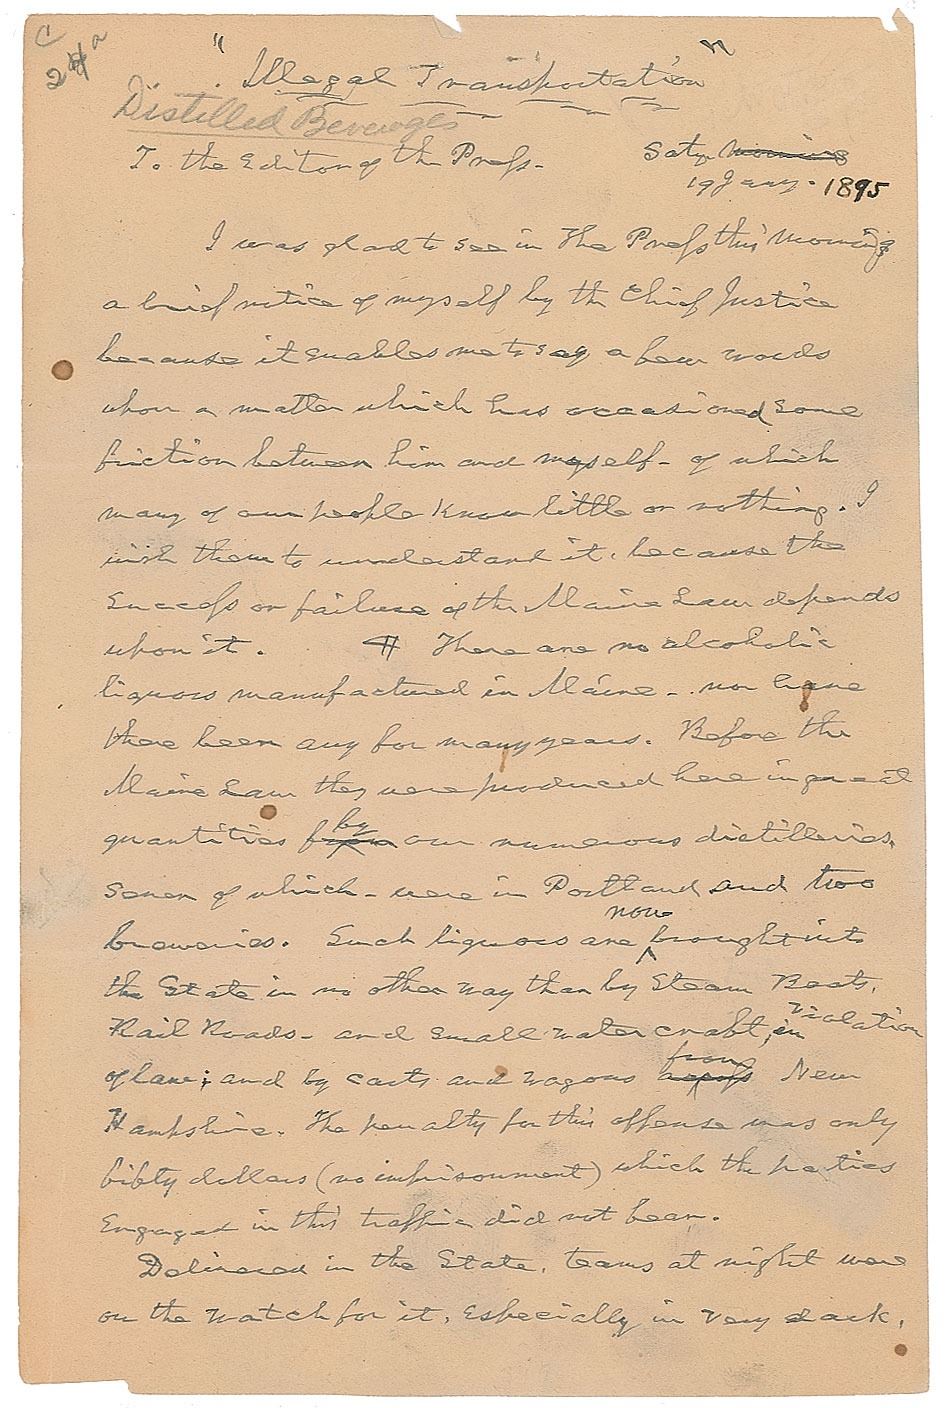 C
2 a
"Illegal Transportation"
Distilled Beverages
To the Editor of the Press -
Saty Morning
19 Jany. 1895
I was glad to see in The Press this Morning
a brief notice of myself by the Chief Justice
because it enables me to say a few words
upon a matter which has occasioned some
friction between him and myself - of which
many of our people know little or nothing. I
wish them to understand it, because the
success or failure of the Maine Law depends
upon it. ¶ There are no alcoholic
liquors manufactured in Maine - nor have
there been any for many years. Before the
Maine Law they were produced here in great
quantities from by our numerous distilleries,
seven of which - were in Portland and two
breweries. Such liquors are now brought into
the State in no other way than by Steam Boats,
Rail Roads - and small water craft, in violation
of law; and by carts and wagons across from New
Hampshire. The penalty for this offense was only
fifty dollars (no imprisonment) which the parties
Engaged in this traffic did not fear.
Delivered in the State, teams at night were
on the watch for it, especially in very dark,